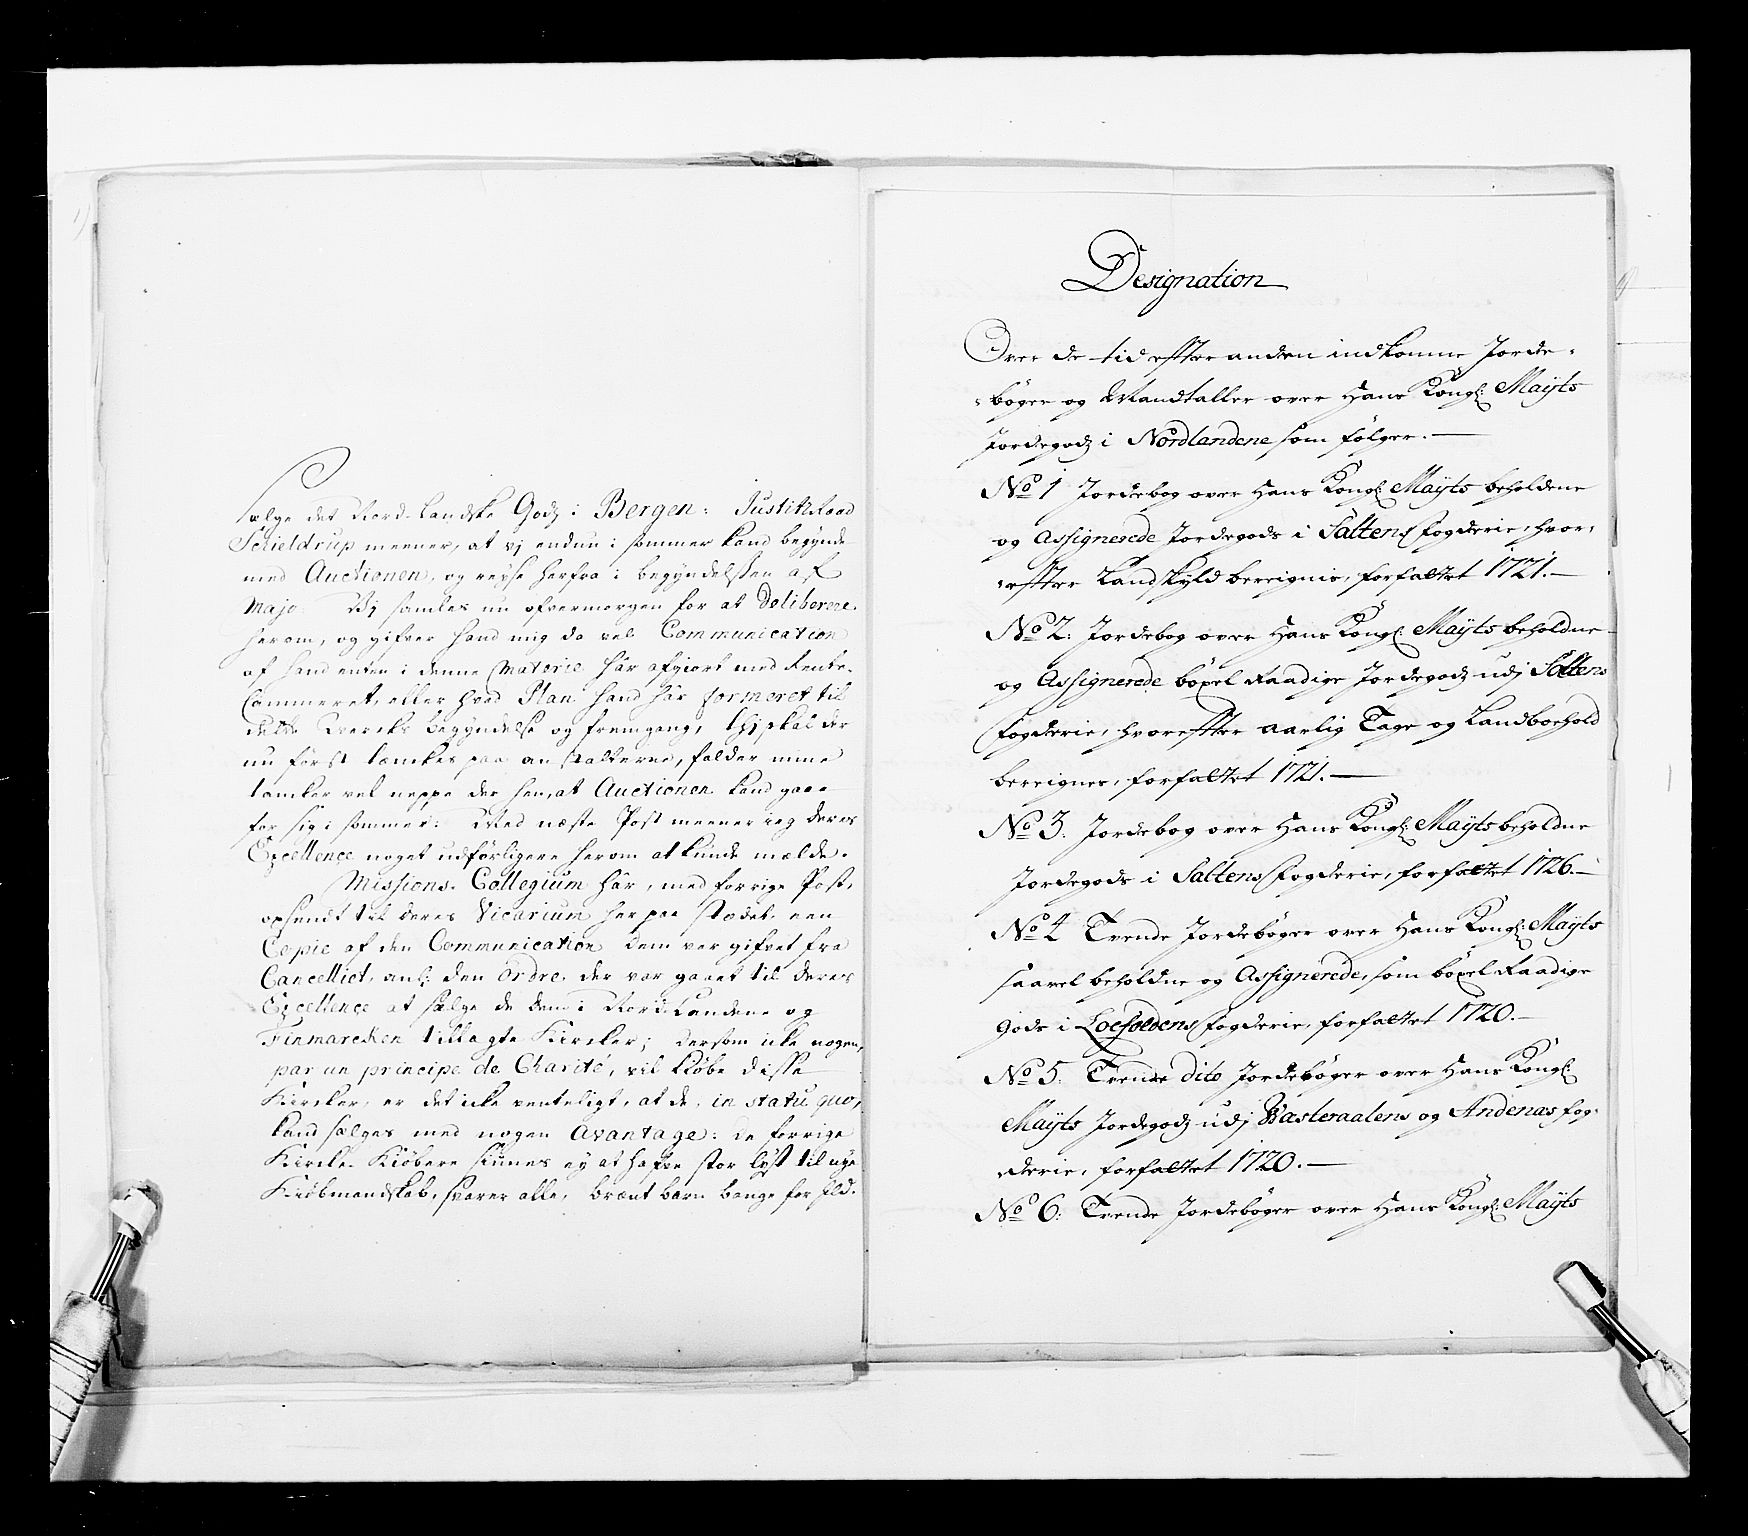 sælge det Nord-Landske Godz i Bergen: Justitz Raad
Schieldrup meener, at vj endnu i sommer kand begynde
med Auctionen, og reyse herfra i begyndelssen af
Majo: Vj samles nu ofvermorgen for at Deliberere
herom, og gifver hand mig da vel Communication
af hand enten i denne Materie hâr afgiort med Rente-
Cammeret, eller hvad Plan hand hâr formeret til
dette Wercks begyndelse og fremgang, thj skal der
nu først tænkes paa anstalterne, falder mine
tancker vel neppe der hen, at Auctionen kand gaae
for sig i sommer: Med næste Post meener jeg deres
Excellence noget udførligere herom at kunde mælde.
Missions-Collegium hâr, med forrige Post,
opsendt til deres Vicarium her paa stædet, een
Copie af den Communication dem var gifvet fra
Cancelliet, anl: den Ordre, der var gaaet til deres
Excellence at sælge de dem i Nord-Landene og
Finmarcken tillagte Kircker; dersom icke nogen,
par un principe de Charité, vil kiøbe disse
Kircker, er det icke venteligt, at de, in statu quo,
kand sælges med nogen Avantage: de forrige
Kircke-Kiøbere siunes ey at hafve stor lyst til nye
Kiøbmandskab, svarer alle, brænt barn bange for Ild.
Designation
Over de tid efter anden indkomne Jorde-
bøger og Mandtaller over Hans Kongl: Mayts
Jordegodz i Nordlandene som følger.
No 1 Jordebog over Hans Kongl: Mayts beholdene
og Assignerede Jordegods i Saltens fogderie, hvor-
efter Landskyld bereignis, forfattet 1721.
No 2: Jordebog over Hans Kongl: Mayts beholdne
og Assignerede böxel Raadige Jordegodz udj Saltens
fogderie, hvorefter aarlig Tage og Landboehold
bereignes, forfattet 1721.
No 3. Jordebog over Hans Kongl: Mayts beholdne
Jordegods i Saltens fogderie, forfattet 1726.
No 4 Tvende Jordebøger over Hans Kongl: Mayts
saavel beholdne og Assignerede, som böxel Raadige
Gods i Loefoedens fogderie, forfattet 1720.
No 5. Tvende dito Jordebøger over Hans Kongl:
Mayts Jordegodz udj Wæsteraalens og Andenæs fog-
derie, forfattet 1720.
No 6: Tvende Jordebøger over Hans Kongl: Mayts